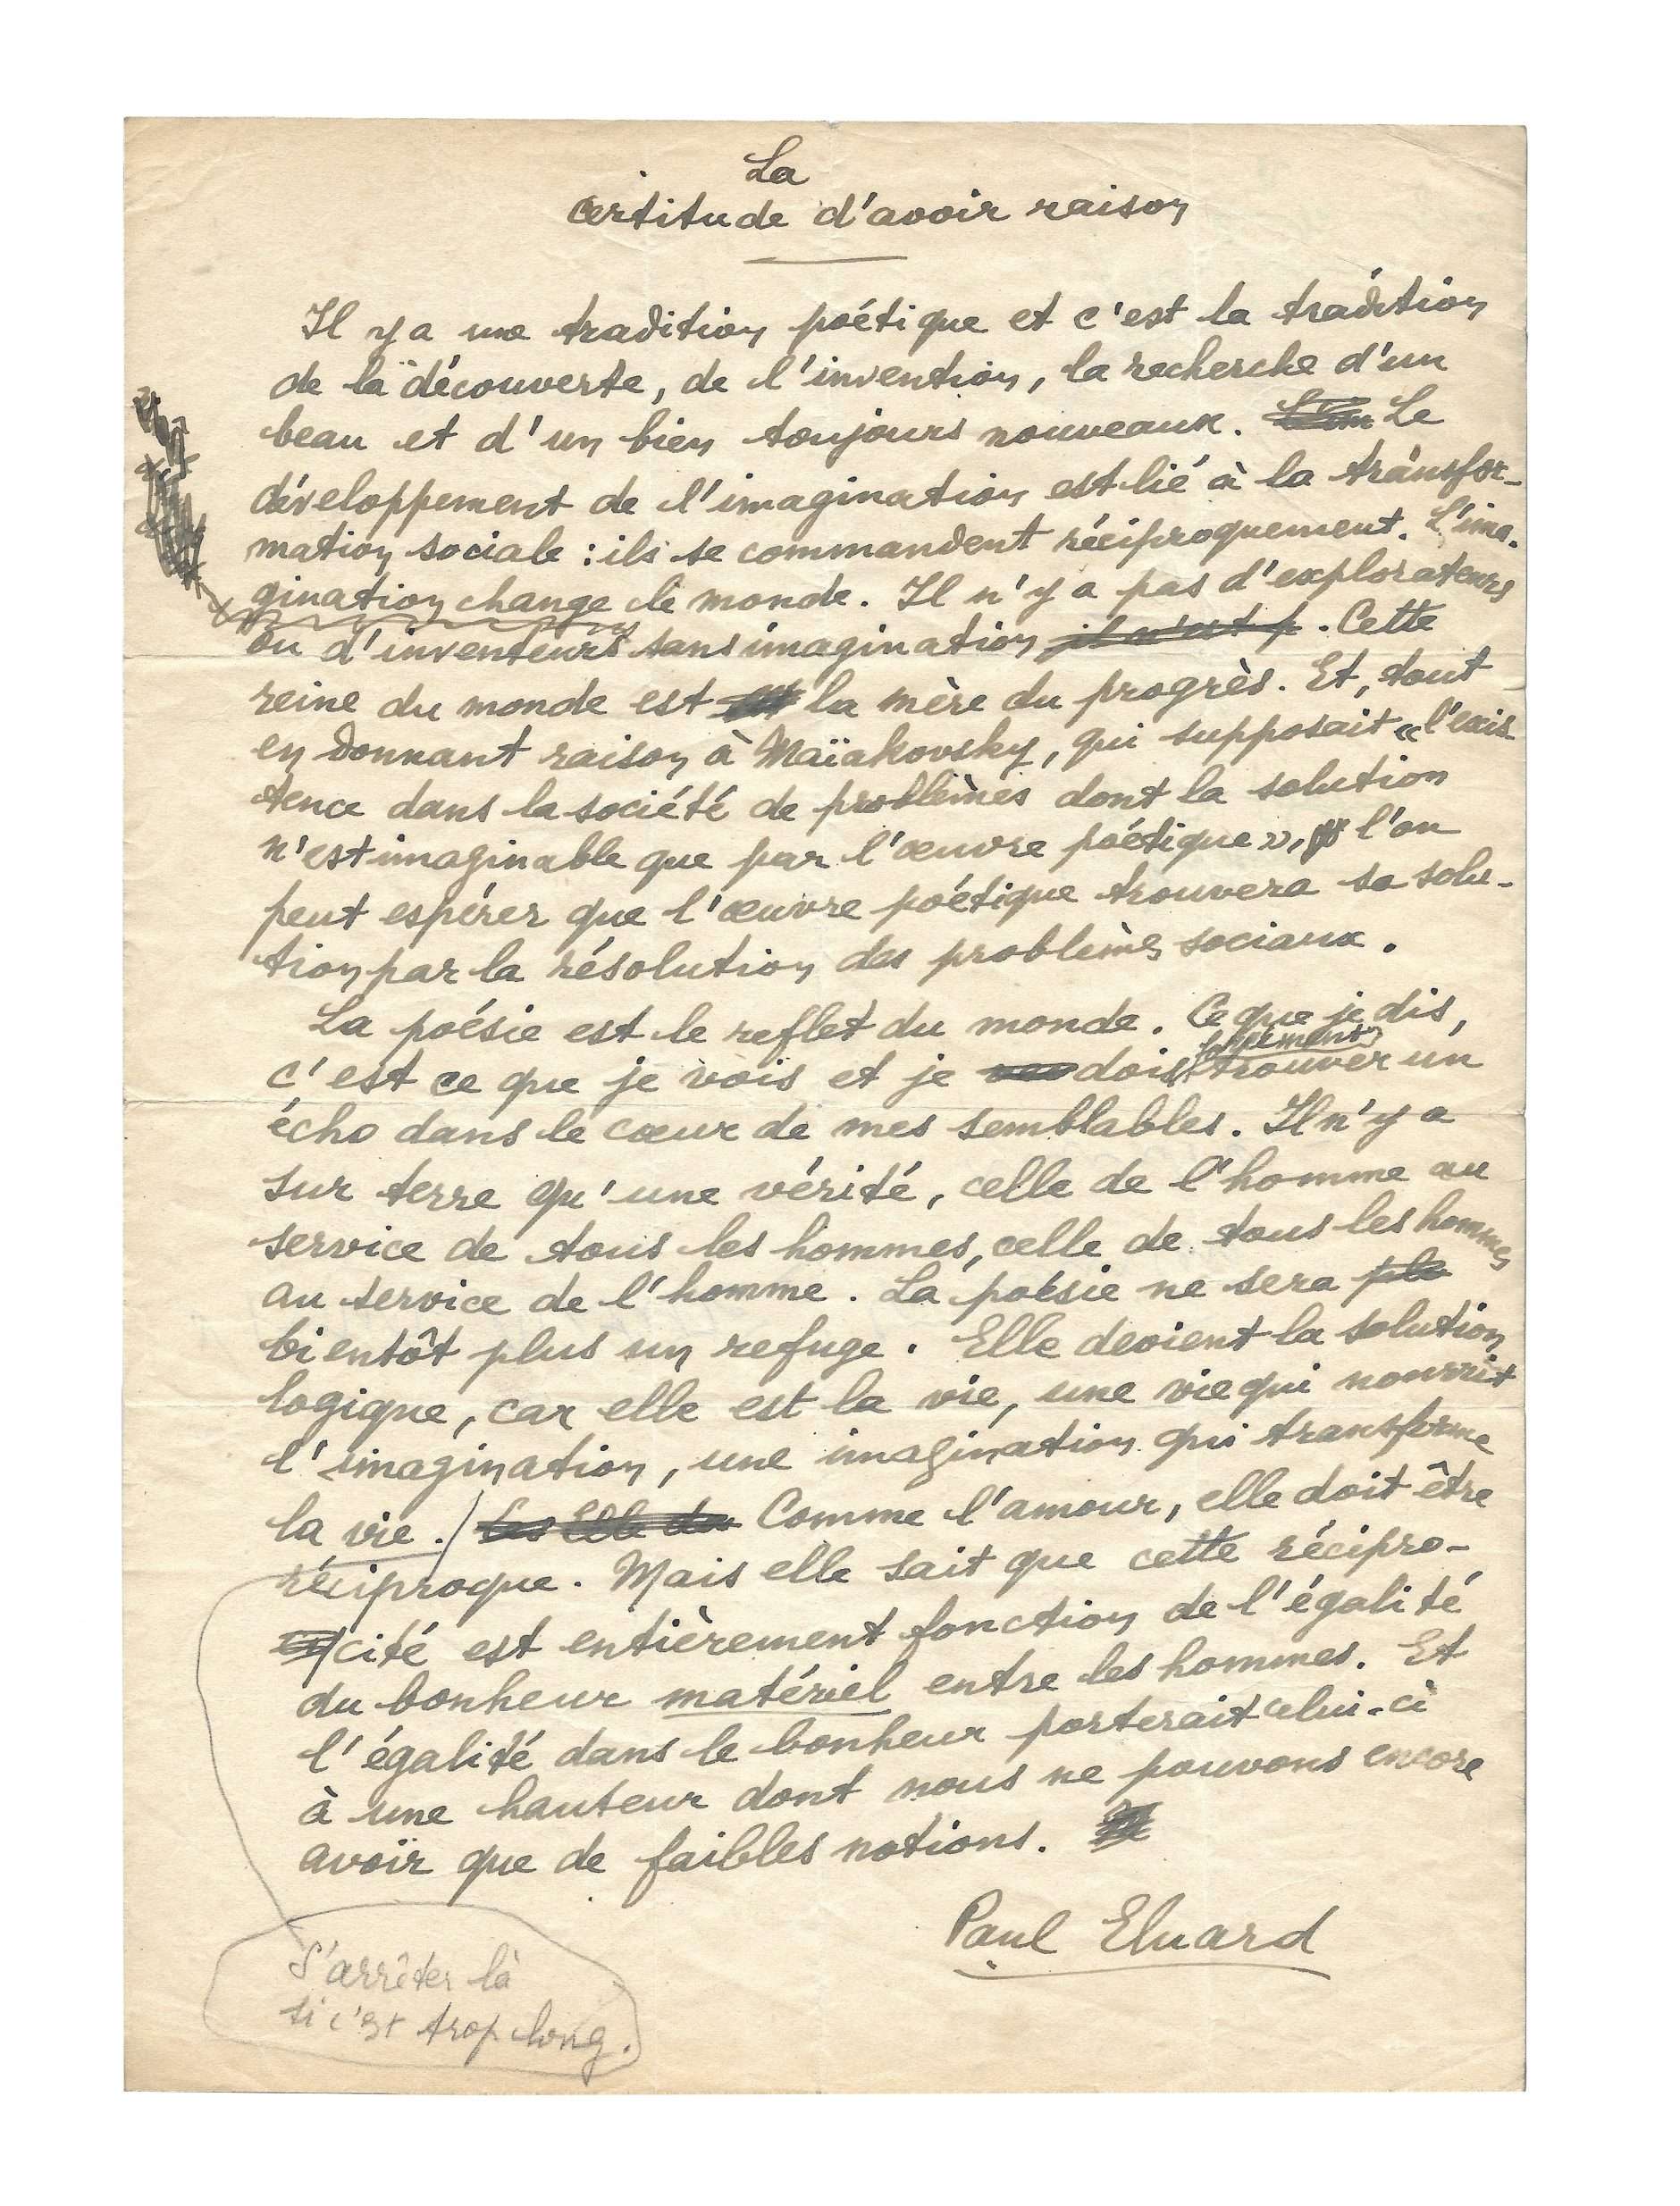 La
certitude d'avoir raison
Il y a une tradition poétique et c'est la tradition
de la découverte, de l'invention, la recherche d'un
beau et d'un bien toujours nouveaux. Le
développement de l'imagination est lié à la transfor-
mation sociale : ils se commandent réciproquement. L'ima-
gination change le monde. Il n'y a pas d'explorateurs
ou d'inventeurs sans imagination il n'est p. Cette
reine du monde est la mère du progrès. Et, tout
en donnant raison à Maïakovsky, qui supposait « l'exis
tence dans la société de problèmes dont la solution
n'est imaginable que par l'œuvre poétique », l'on
peut espérer que l'œuvre poétique trouvera sa solu-
tion par la résolution des problèmes sociaux.
La poésie est le reflet du monde. Ce que je dis,
c'est ce que je vois et je dois trouver un
écho dans le cœur de mes semblables. Il n'y a
sur terre qu'une vérité, celle de l'homme au
service de tous les hommes, celle de tous les hommes
au service de l'homme. La poésie ne sera plu
bientôt plus un refuge. Elle devient la solution
logique, car elle est la vie, une vie qui nourrit
l'imagination, une imagination qui transforme
la vie. Comme l'amour, elle doit être
réciproque. Mais elle sait que cette récipro-
cité est entièrement fonction de l'égalité
du bonheur matériel entre les hommes. Et
l'égalité dans le bonheur porterait celui-ci
à une hauteur dont nous ne pouvons encore
avoir que de faibles notions.
Paul Eluard
S'arrêter là
si c'est trop long.